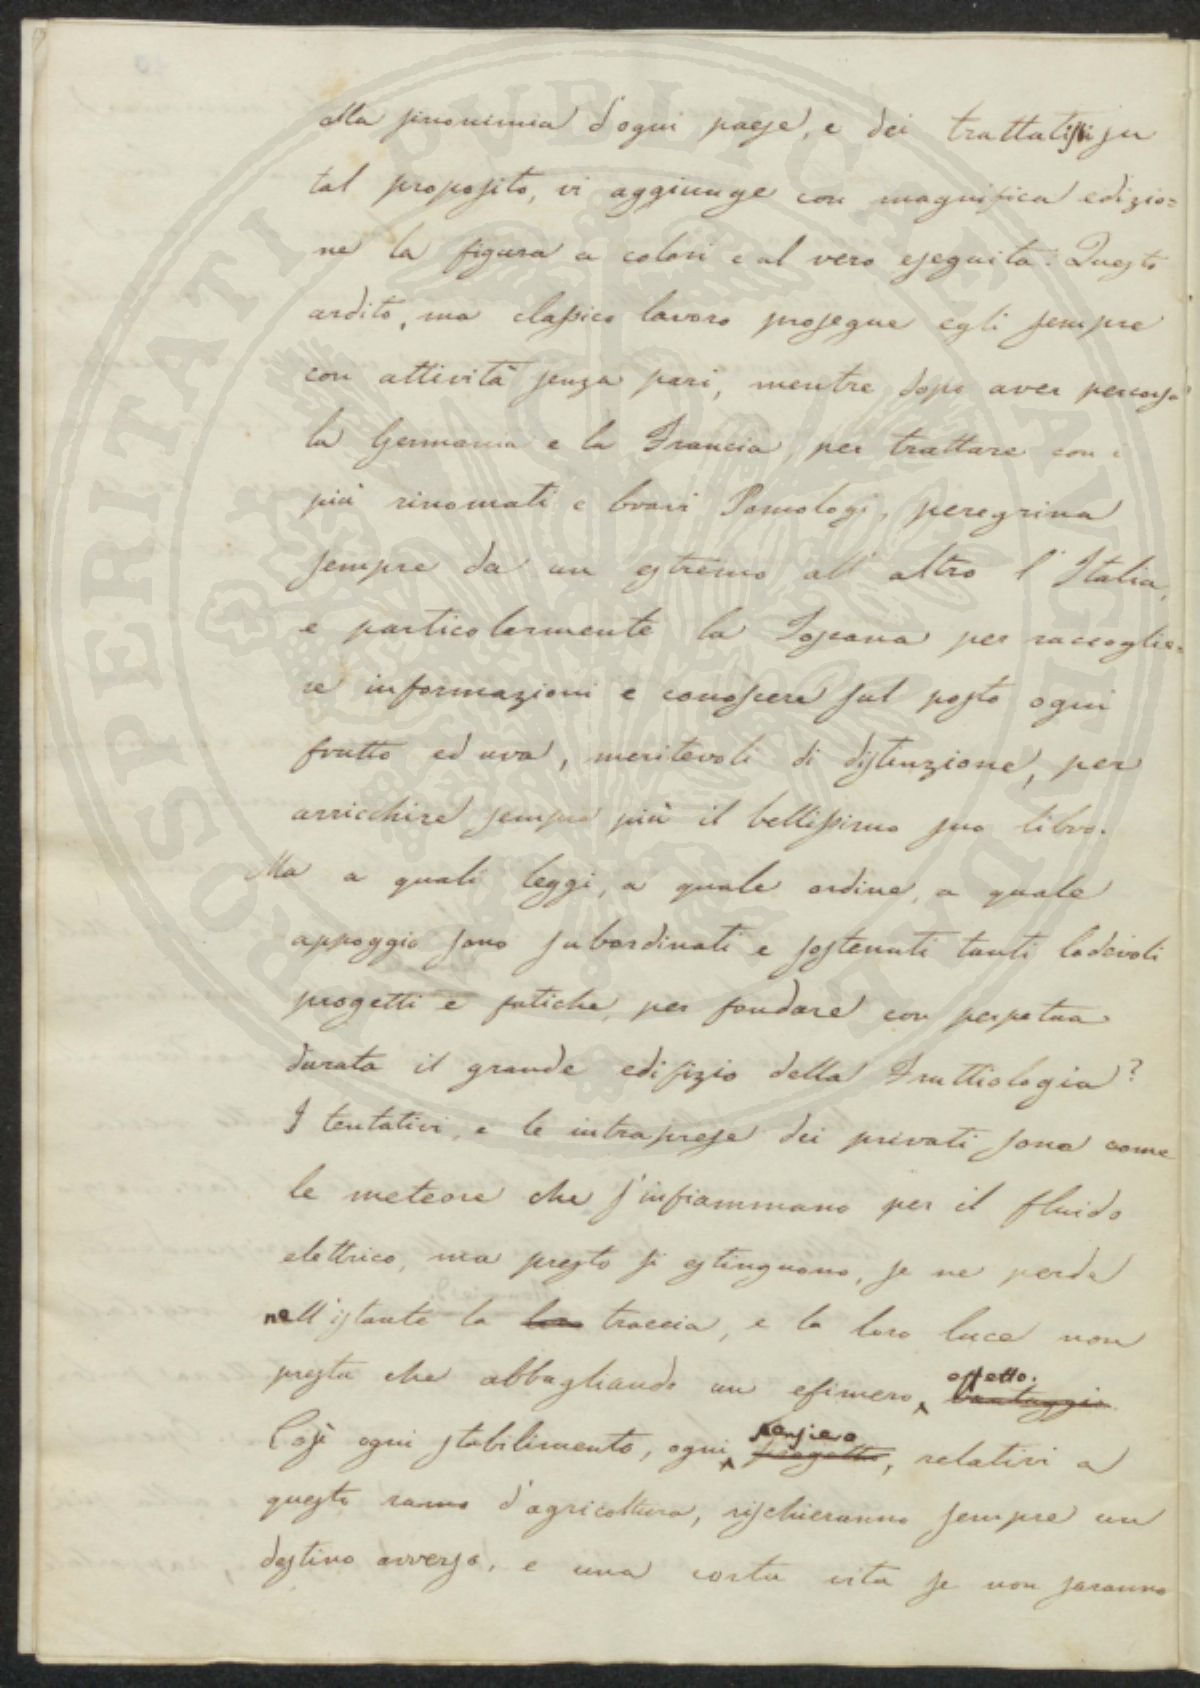 alla sinonimia d'ogni paese, e dei trattatisti su
tal proposito, vi aggiunge con magnifica edizio=
ne la figura a colori e al vero eseguita. Questo
ardito, ma classico lavoro prosegue egli sempre
con attività senza pari, mentre dopo aver percorsa
la Germania e la Francia, per trattare con i
più rinomati e bravi Pomologi, peregrina
sempre da un estremo all'altro l'Italia,
e particolarmente la Toscana per raccoglie=
re informazioni e conoscere sul posto ogni
frutto ed uva, meritevoli di distinzione, per
arricchire sempre più il bellissimo suo libro.
Ma a quali leggi, a quale ordine, a quale
appoggio sono subordinati e sostenuti tanti lodevoli
progetti e fatiche, per fondare con perpetua
durata il grande edifizio della Fruttiologia?
I tentativi, e le intraprese dei privati sono come
le meteore che s'infiammano per il fluido
elettrico, ma presto si estinguono, se ne perde
nell'istante la loro traccia, e la loro luce non
presta che abbagliando un efimero effetto. vantaggio.
Così ogni stabilimento, ogni pensiero progetto, relativi a
questo ramo d'agricoltura, rischieranno sempre un
destino avverso, e una corta vita se non saranno
PROSPERITATI PVBLICAE AVGENDAE